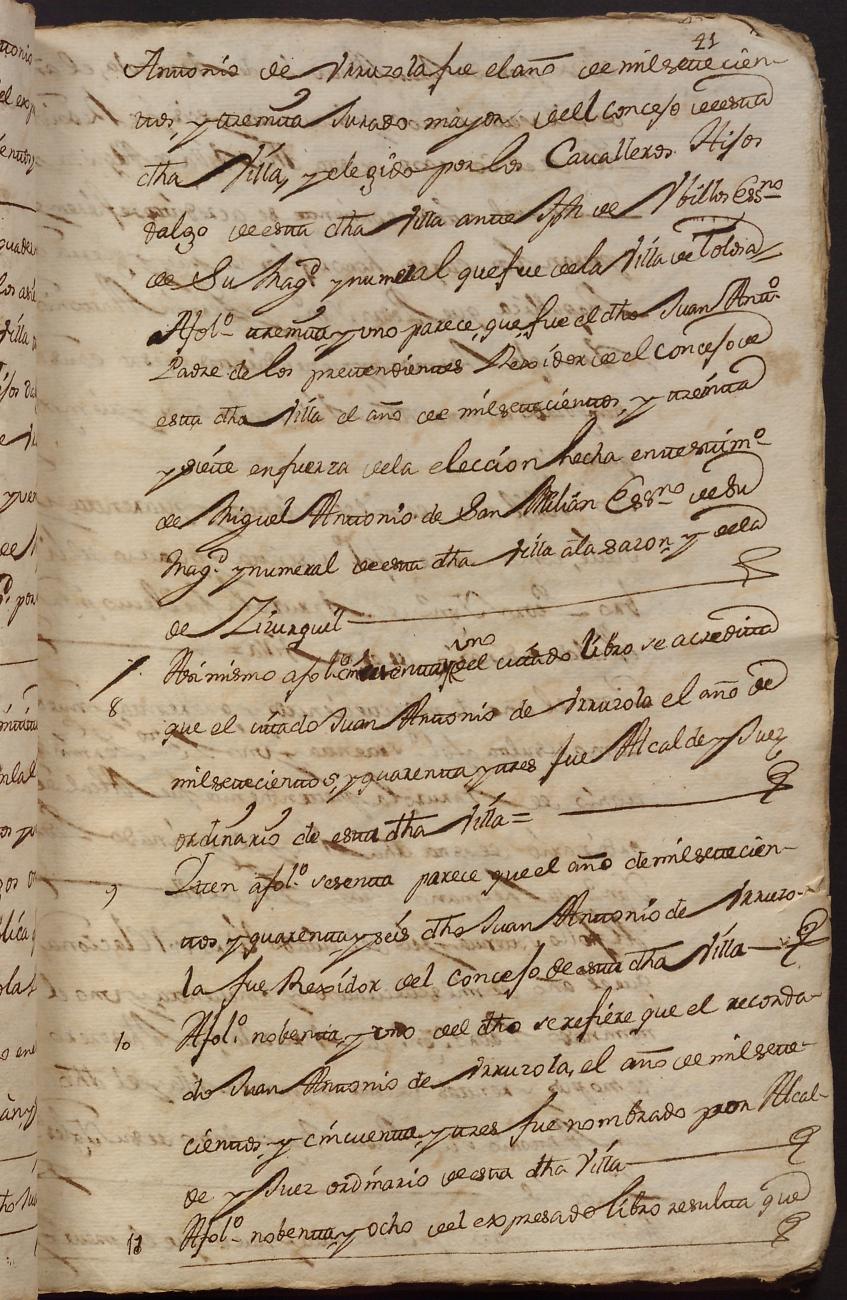 41
Antonio de Yrruzola fue el año de mil setecien-
tos, y treinta Jurado mayor de el concejo de esta
dha Villa, y elegido por los Cavalleros Hijos
dalgo de esta dha Villa ante Jph de Ybillos Essno
de Su Magd. y numeral que fue de la Villa de Tolosa
Afolo. treinta y uno parece, que fue el dho Juan Anto.
Padre de los pretendientes Rexidor de el concejo de
esta dha Villa el año de mil setecientos, y treinta
y siete en fuerza de la eleccion hecha en testimo.
de Miguel Antonio de San Milián Essno. de Su
Magd. y numeral de esta dha Villa ala sazon y de la
de Zizurquil
8
Asi mismo afolo. y uno del citado libro se acredita
que el citado Juan Antonio de Yrruzola el año de
mil setecientos, y quarenta y tres fue Alcalde y Juez
ordinario de esta dha Villa =
9
Yten afolo. sesenta parece que el año de mil setecien-
tos y quarenta y seis dho Juan Antonio de Yrruzo-
la fue Rexidor del concejo de esta dha Villa
10
Afolo. nobenta, y uno del dho se refiere que el recorda-
do Juan Antonio de Yrruzola, el año de mil sete-
cientos, y cincuenta, y tres fue nombrado por Alcal-
de y Juez ordinario de esta dha Villa
11
Afolo. nobenta, y ocho del expresado libro resulta que